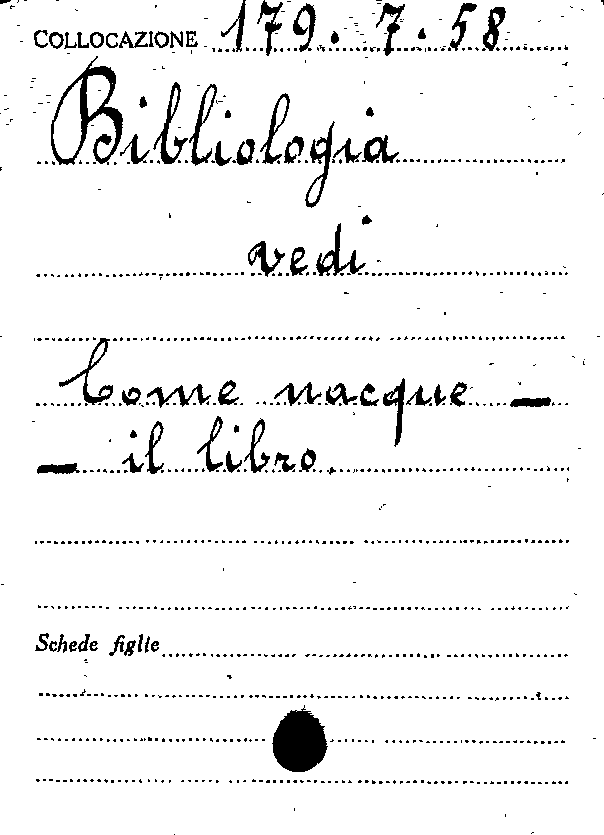 COLLOCAZIONE 179. 7. 58
Bibliologia
vedi
Come nacque —
— il libro.
Schede figlie